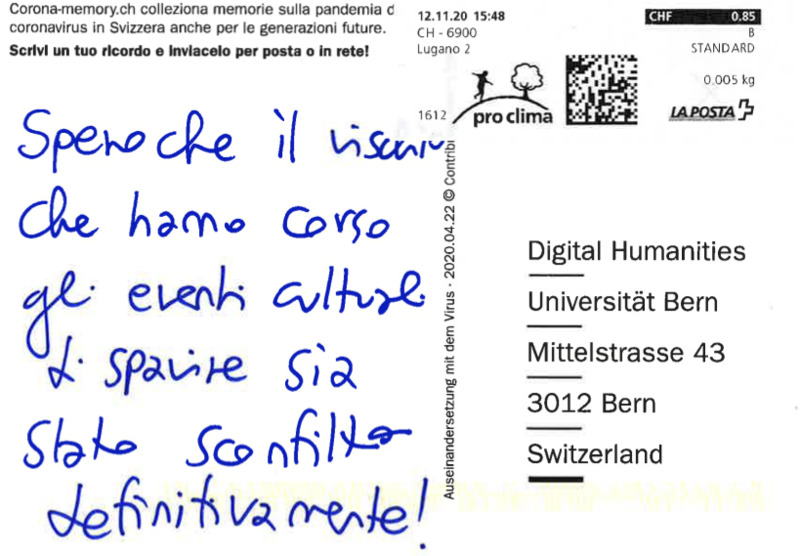 Corona-memory.ch colleziona memorie sulla pandemia d
coronavirus in Svizzera anche per le generazioni future.
Scrivi un tuo ricordo e inviacelo per posta o in rete!
12.11.20 15:48
CH - 6900
Lugano 2
CHF 0.85
B
STANDARD
0.005 kg
1612
pro clima
LA POSTA
Spero che il rischio
che hanno corso
gli eventi culturali
di sparire sia
stato sconfitto
definitivamente!
Auseinandersetzung mit dem Virus · 2020.04.22 © Contribi
Digital Humanities
Universität Bern
Mittelstrasse 43
3012 Bern
Switzerland